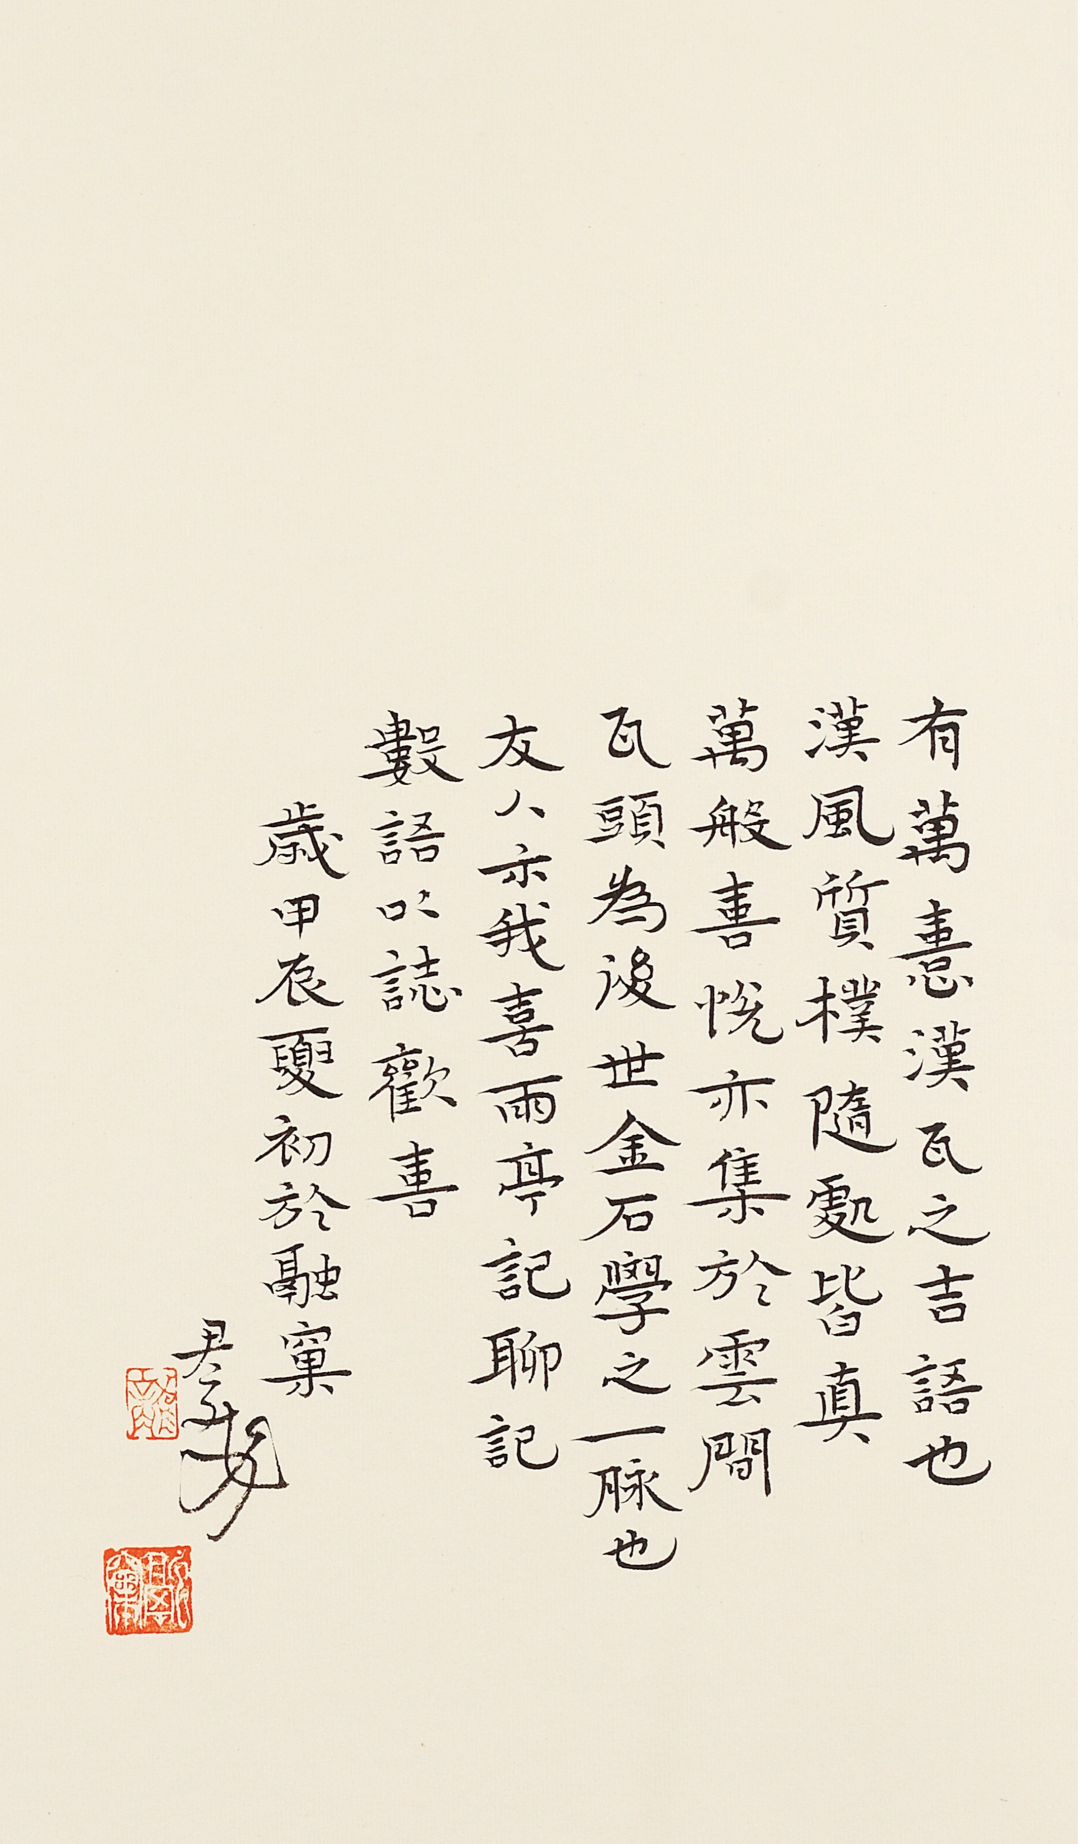 有萬憙漢瓦之吉語也
漢風質樸隨處皆真
萬般喜悅亦集於雲間
瓦頭為後世金石學之一脉也
友人示我喜雨亭記聊記
數語以誌歡喜
歲甲辰夏初於融窠